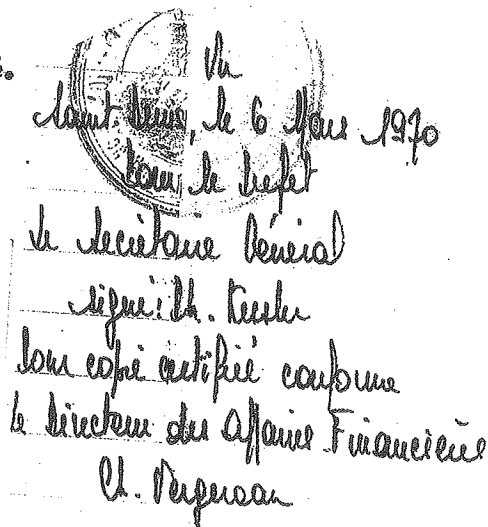 Vu
Saint-Denis, le 6 Mars 1970
Pour le Préfet
Le Secrétaire Général
signé: Ch. Kessler
Pour copie certifiée conforme
Le Directeur des Affaires Financières
Ch.